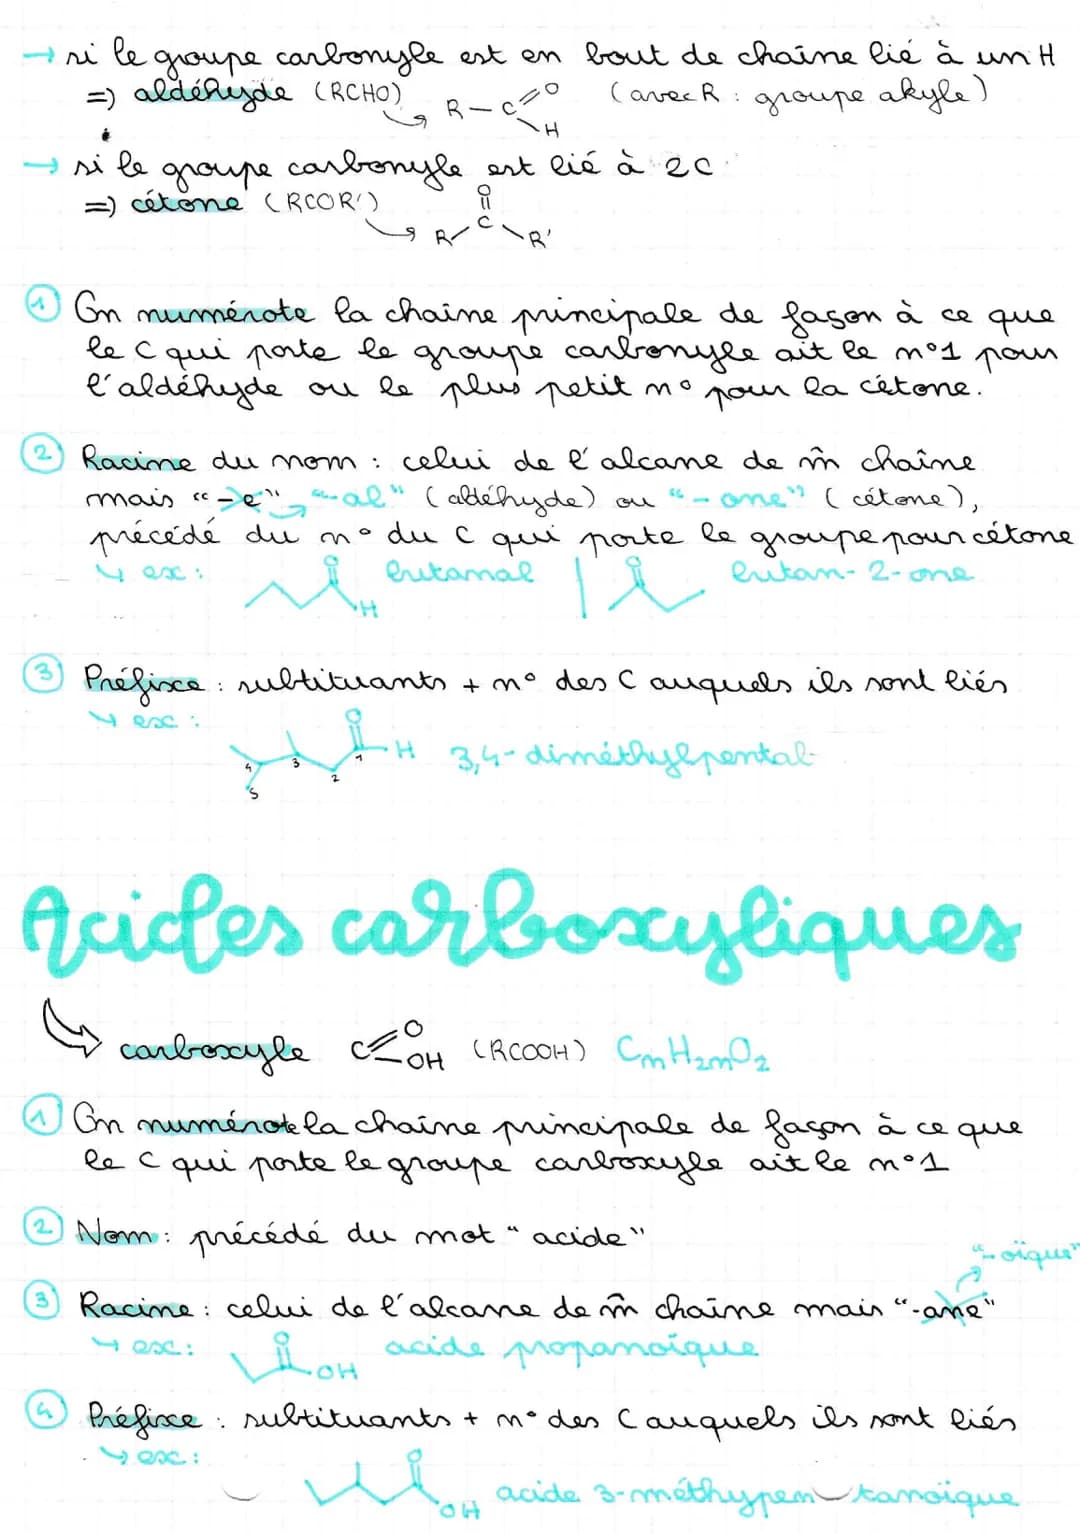 → si le groupe carbonyle est en bout de chaîne lié à un H
=> aldéhyde (RCHO) R-C=O H (avec R : groupe akyle)
→ si le groupe carbonyle est lié à 2C
=> cétone (RCOR') R-C(=O)-R'
① On numérote la chaîne principale de façon à ce que
le C qui porte le groupe carbonyle ait le n°1 pour
l'aldéhyde ou le plus petit n° pour la cétone.
② Racine du nom : celui de l'alcane de m̂ chaîne
mais "-e" "-al" (aldéhyde) ou "-one" (cétone),
précédé du n° du C qui porte le groupe pour cétone
↳ ex : O H butanal | O butan-2-one
③ Préfixe : subtituants + n° des C auquels ils sont liés
↳ ex : O H 1 2 3 4 5 3,4-diméthylpental
Acides carboxyliques
carboxyle C=O OH (RCOOH) CnH2nO2
① On numérote la chaîne principale de façon à ce que
le C qui porte le groupe carboxyle ait le n°1
② Nom : précédé du mot "acide"
"-oïque"
③ Racine : celui de l'alcane de m̂ chaîne mais "-ane"
↳ ex : O OH acide propanoïque
④ Préfixe : subtituants + n° des C auquels ils sont liés
↳ ex :
O OH acide 3-méthypentanoïque